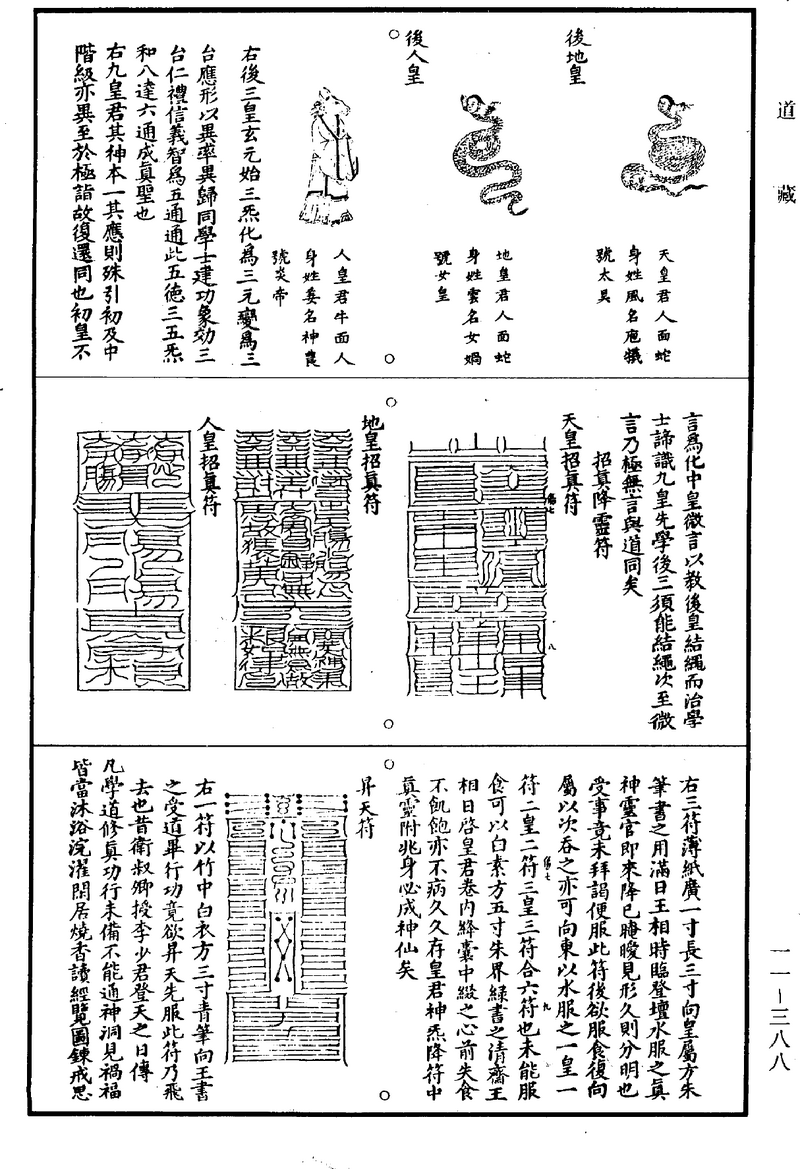 道藏
後地皇
天皇君人面蛇
身姓風名庖犧
號太昊
後人皇
地皇君人面蛇
身姓雲名女媧
號女皇
人皇君牛面人
身姓姜名神農
號炎帝
右後三皇玄元始三炁化爲三元變爲三
台應形以異率異歸同學士建功象効三
台仁禮信義智爲五通通此五德三五炁
和八達六通成眞聖也
右九皇君其神本一其應則殊引初及中
階級亦異至於極詣故復還同也初皇不
言爲化中皇微言以教後皇結繩而治學
士諦識九皇先學後三須能結繩次至微
言乃極無言與道同矣
招眞降靈符
天皇招眞符
地皇招眞符
人皇招眞符
右三符薄紙廣一寸長三寸向皇屬方朱
筆書之用滿日王相時臨登壇水服之眞
神靈官即來降已晻曖見形久則分明也
受事竟未拜謁便服此符後欲服食復向
屬以次吞之亦可向東以水服之一皇一
符二皇二符三皇三符合六符也未能服
食可以白素方五寸朱界綠書之清齋王
相日啓皇君卷內絳囊中綴之心前失食
不飢飽亦不病久久存皇君神炁降符中
眞靈附兆身必成神仙矣
昇天符
右一符以竹中白衣方三寸青筆向王書
之受道畢行功竟欲昇天先服此符乃飛
去也昔衛叔卿授李少君登天之日傳
凡學道修眞功行未備不能通神洞見禍福
皆當沐浴浣濯閑居燒香讀經覽圖鍊戒思
一一－三八八